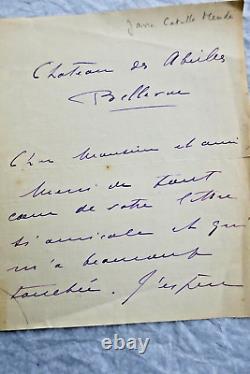 Jane Catulle Mendès
Chateau des Abeilles
Bellevue
Cher Monsieur et ami,
Merci de tout
cœur de votre lettre
si amicale et qui
m'a beaucoup
touchée. J'espère
© 123vintage